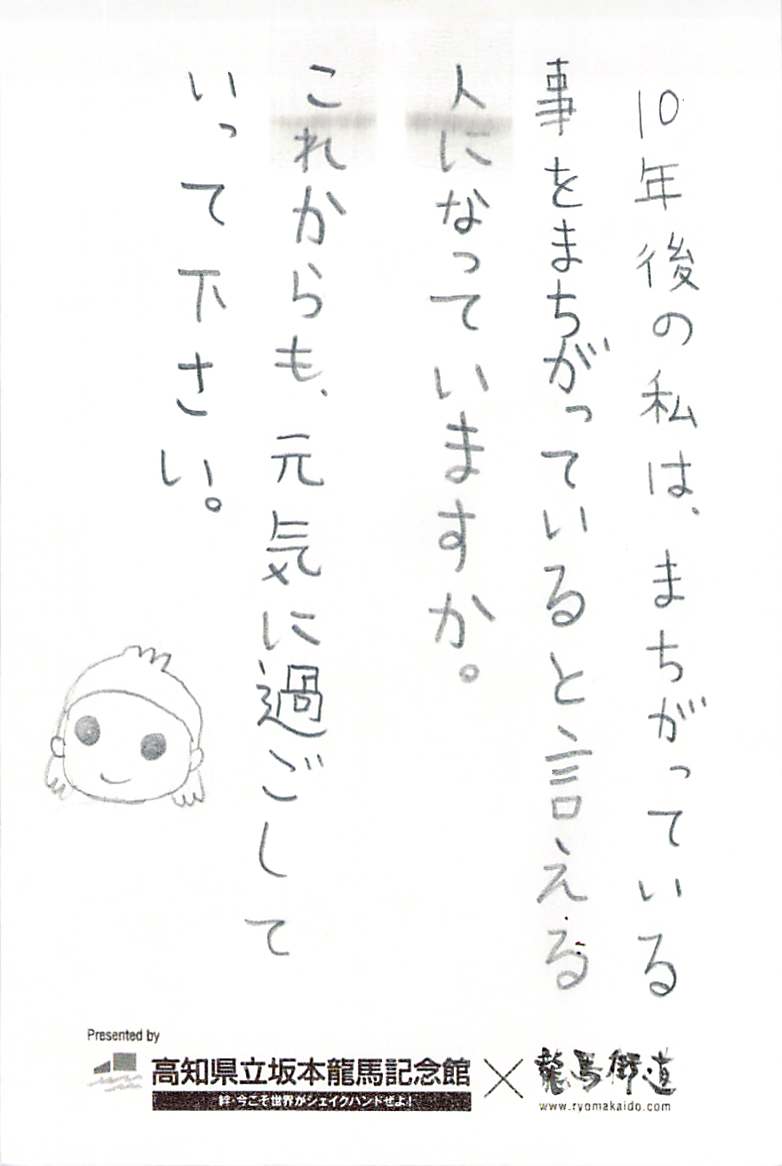 10年後の私は、まちがっている
事をまちがっていると言える
人になっていますか。
これからも、元気に過ごして
いって下さい。
Presented by
高知県立坂本龍馬記念館×龍馬街道
絆・今こそ世界がシェイクハンドぜよ！
www.ryomakaido.com